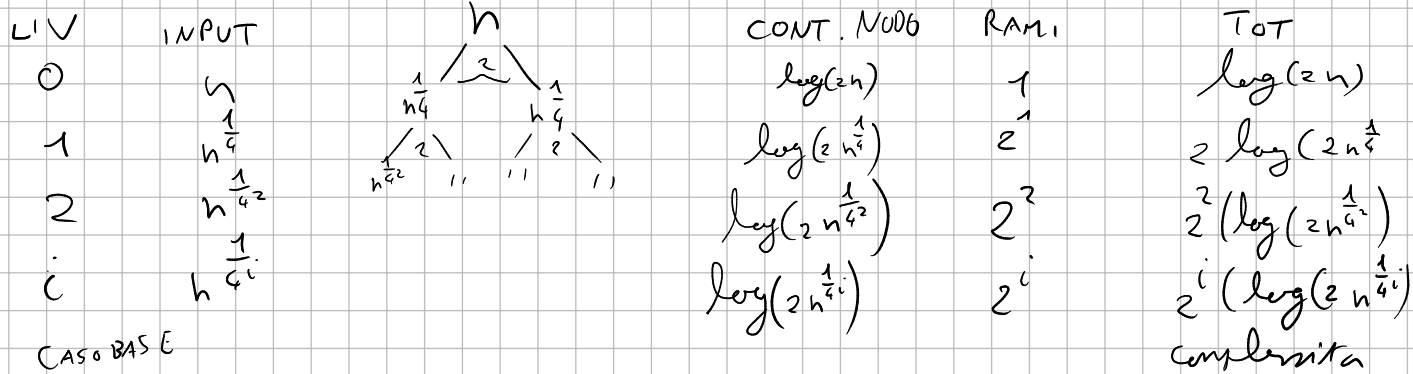 LIV INPUT n CONT. NODO RAMI TOT
0 n 2 log(2n) 1 log(2n)
n^{1/4} n^{1/4}
1 n^{1/4} 2 2 log(2n^{1/4}) 2^1 2 log(2n^{1/4}
n^{1/4^2} '' '' ''
2 n^{1/4^2} log(2n^{1/4^2}) 2^2 2^2(log(2n^{1/4^2})
i n^{1/4^i} log(2n^{1/4^i}) 2^i 2^i(log(2n^{1/4^i})
CASO BASE complessita